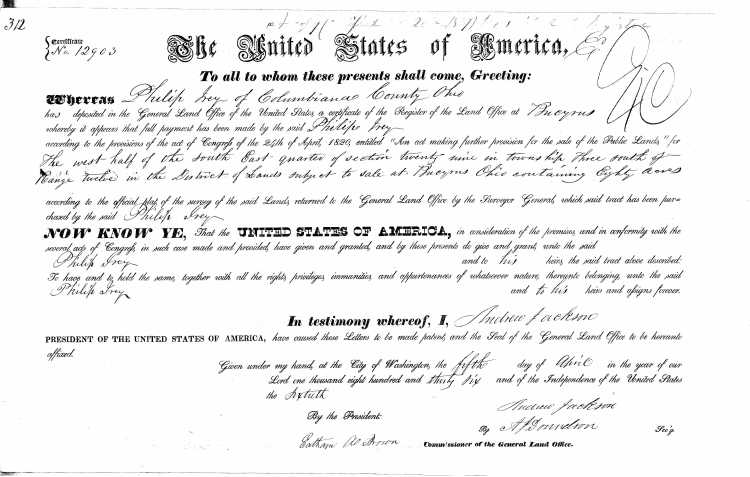 312
Certificate
No. 12903
The United States of America,
To all to whom these presents shall come, Greeting:
WHEREAS Philip Irey of Columbiana County Ohio
has deposited in the General Land Office of the United States, a certificate of the Register of the Land Office at Bucyrus
whereby it appears that full payment has been made by the said Philip Irey
according to the provisions of the act of Congress of the 24th of April, 1820, entitled "An act making further provision for the sale of the Public Lands," for
the west half of the South East quarter of section twenty nine in township three south of
Range twelve in the District of Lands subject to sale at Bucyrus Ohio containing Eighty acres
according to the official plat of the survey of the said Lands, returned to the General Land Office by the Surveyor General, which said tract has been pur-
chased by the said Philip Irey
NOW KNOW YE, That the UNITED STATES OF AMERICA, in consideration of the premises, and in conformity with the
several acts of Congress, in such case made and provided, have given and granted, and by these presents do give and grant, unto the said
Philip Irey and to his heirs, the said tract above described:
To have and to hold the same, together with all the rights, privileges, immunities, and appurtenances of whatsoever nature, thereunto belonging, unto the said
Philip Irey and to his heirs and assigns forever.
In testimony whereof, I, Andrew Jackson
PRESIDENT OF THE UNITED STATES OF AMERICA, have caused these Letters to be made patent, and the Seal of the General Land Office to be hereunto
affixed.
Given under my hand, at the City of Washington, the fifth day of April in the year of our
Lord one thousand eight hundred and thirty six and of the Independence of the United States
the sixtieth
Andrew Jackson
By the President:
By A J Donelson Sec'y
Commissioner of the General Land Office.